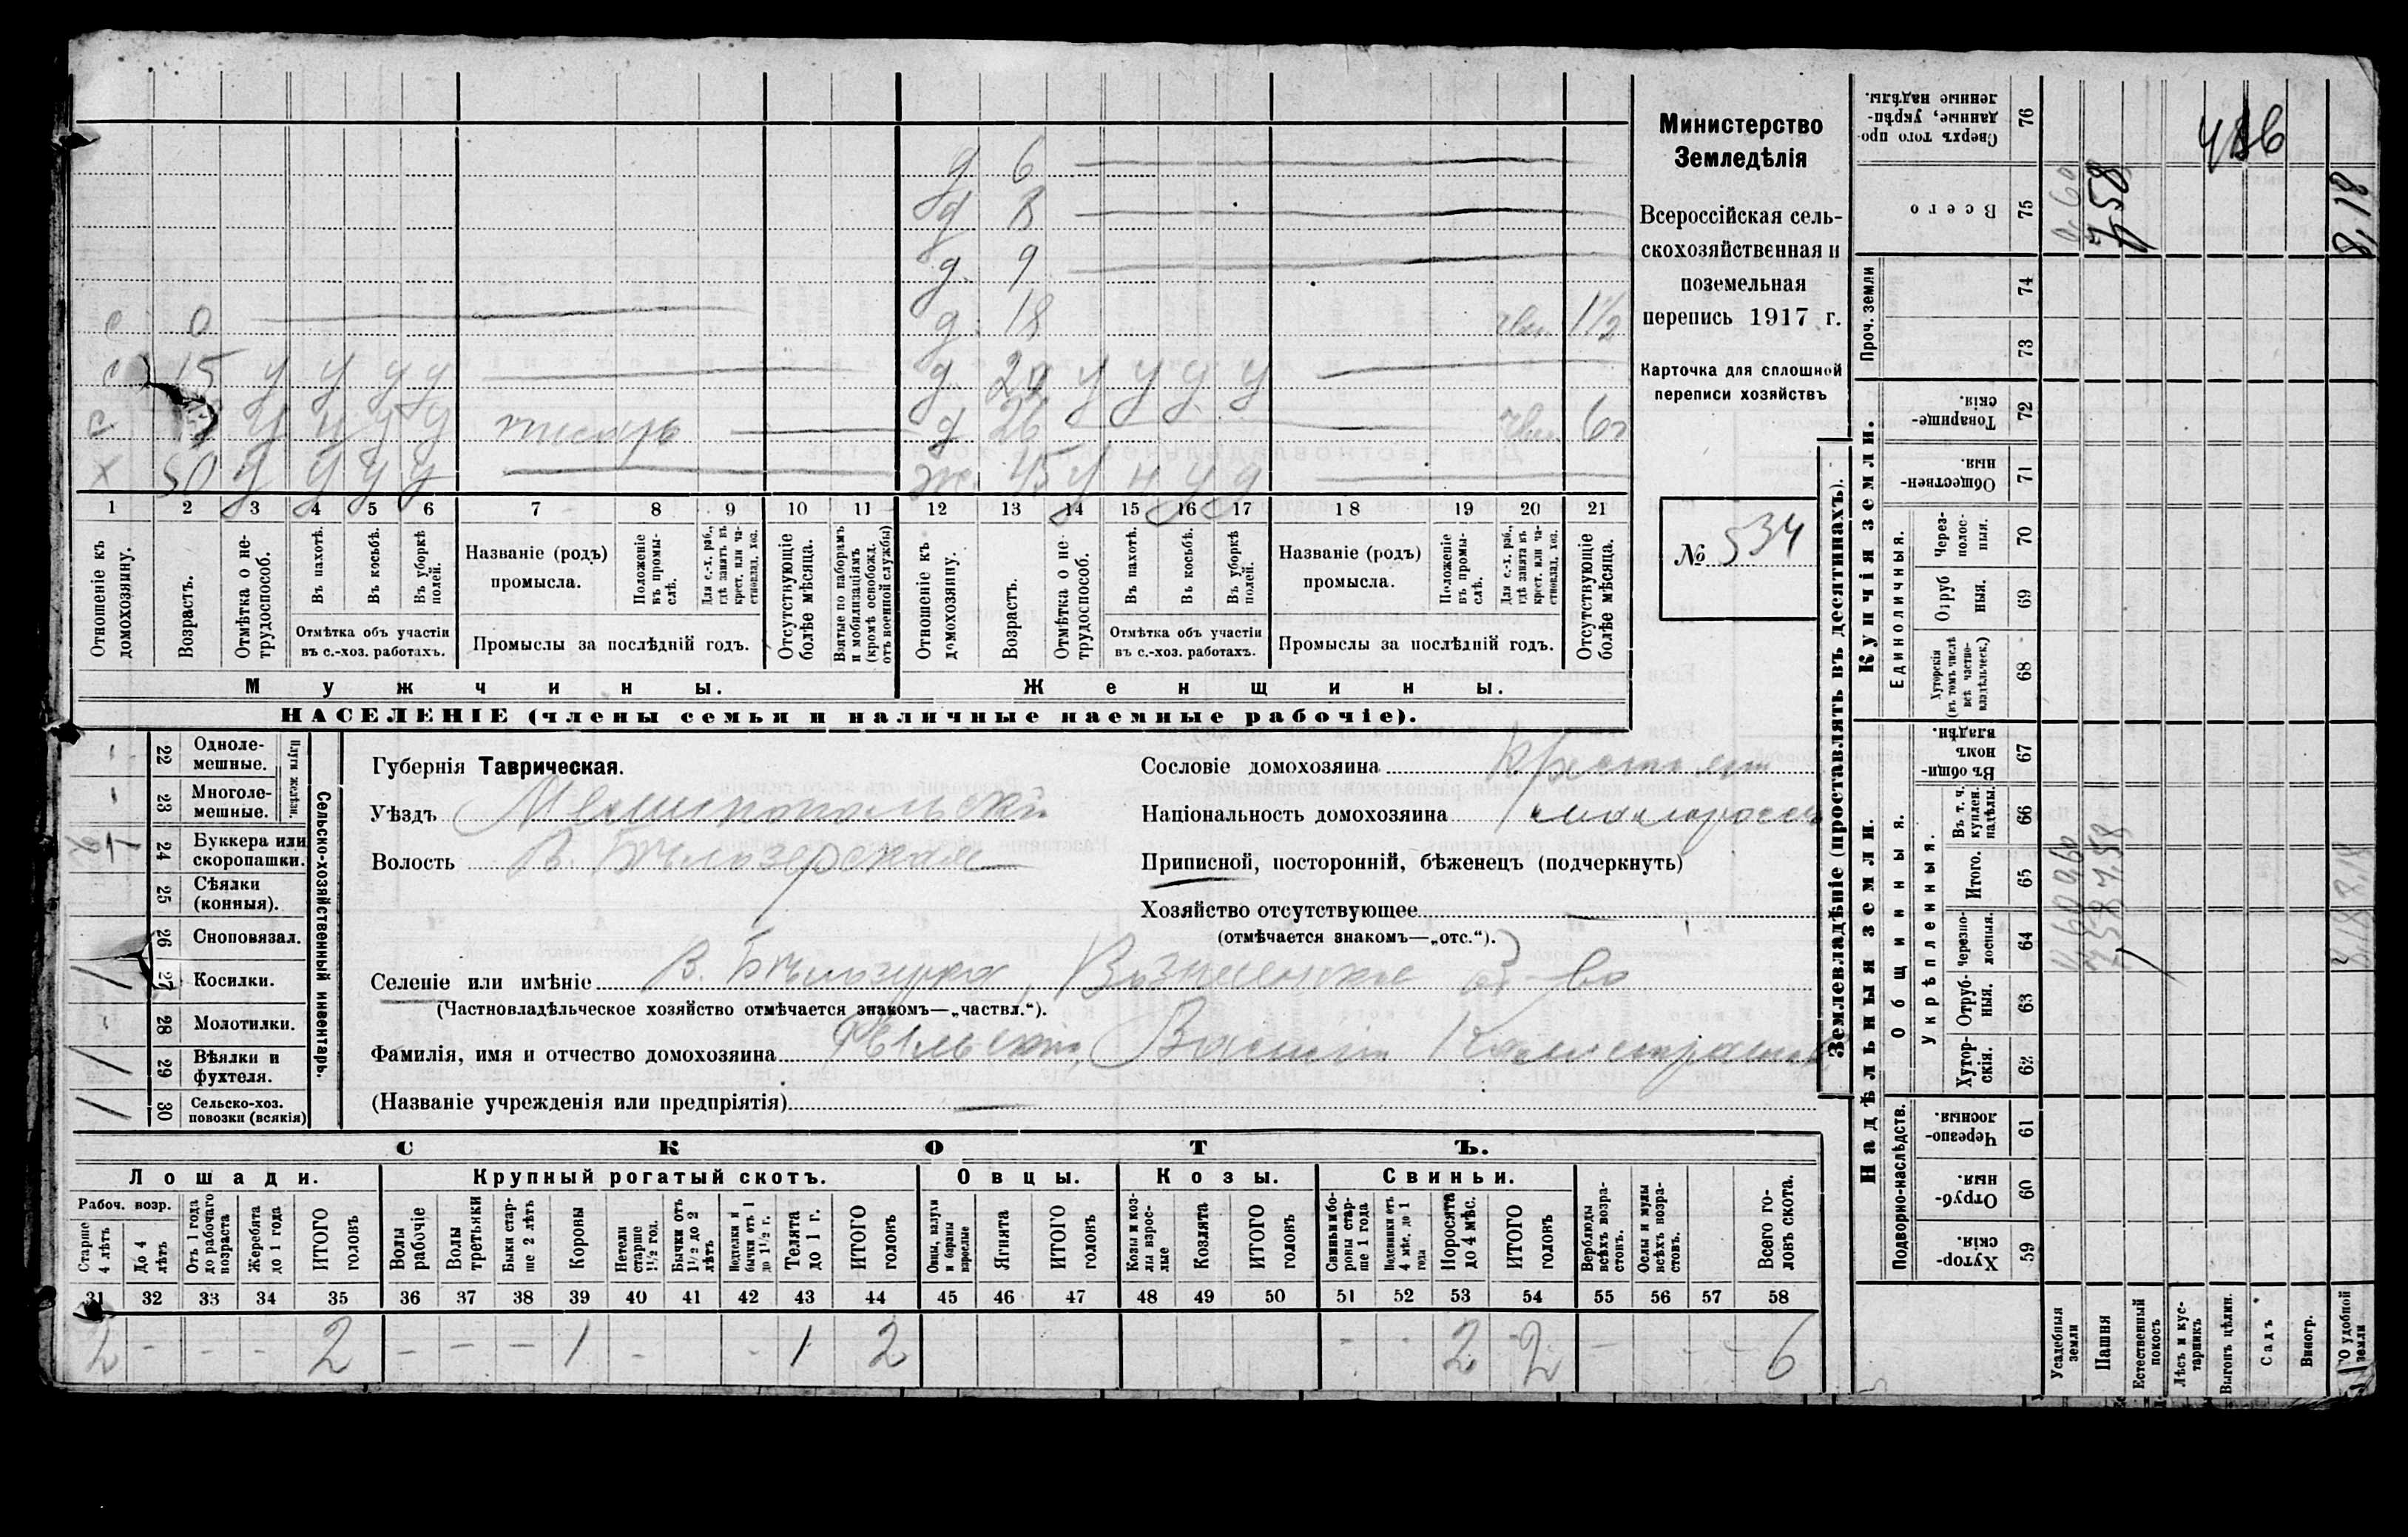 д 6
д 8
д. 9
с 0 д. 18 1½
с 15 у у у у д. 20 у у у у
с у у у у писарь д 26
х 50 у у у у ж. 45 у н у у
1 2 3 4 5 6 7 8 9 10 11 12 13 14 15 16 17 18 19 20 21
Отношеніе къ домохозяину.
Возрастъ.
Отмѣтка о не-
трудоспособ.
Въ пахотѣ.
Въ косьбѣ.
Въ уборкѣ полей.
Отмѣтка объ участіи
въ с.-хоз. работахъ.
Названіе (родъ)
промысла.
Положеніе въ промы-
слѣ.
Для с.-х. раб., гдѣ занятъ въ крест. или ча-
стновлад. хоз.
Промыслы за послѣдній годъ.
Отсутствующіе болѣе мѣсяца.
Взятые по наборамъ и мобилизаціямъ (кромѣ освобожд. отъ военной службы)
Отношеніе къ домохозяину.
Возрастъ.
Отмѣтка о не-
трудоспособ.
Въ пахотѣ.
Въ косьбѣ.
Въ уборкѣ полей.
Отмѣтка объ участіи
въ с.-хоз. работахъ.
Названіе (родъ)
промысла.
Положеніе въ промы-
слѣ.
Для с.-х. раб., гдѣ занята въ крест. или ча-
стновлад. хоз.
Промыслы за послѣдній годъ.
Отсутствующіе болѣе мѣсяца.
Мужчины.
Женщины.
НАСЕЛЕНІЕ (члены семьи и наличные наемные рабочіе).
Министерство
Земледѣлія
Всероссійская сель-
скохозяйственная и
поземельная
перепись 1917 г.
Карточка для сплошной
переписи хозяйствъ
№ 534
22 Одноле-
мешные.
23 Многоле-
мешные.
Плуги желѣзн.
24 Буккера или
скоропашки.
25 Сѣялки
(конныя).
26 Сноповязал.
27 Косилки.
28 Молотилки.
29 Вѣялки и
фухтеля.
30 Сельско-хоз.
повозки (всякія)
Сельско-хозяйственный инвентарь.
Губернія Таврическая.
Уѣздъ Мелитопольскій
Волость В. Бѣлозерская
Селеніе или имѣніе В. Бѣлозерка, Вознесенское об-во
(Частновладѣльческое хозяйство отмѣчается знакомъ—„частвл.“).
Фамилія, имя и отчество домохозяина Василій
(Названіе учрежденія или предпріятія)
Сословіе домохозяина крестьянин
Національность домохозяина малоросс
Приписной, посторонній, бѣженецъ (подчеркнуть)
Хозяйство отсутствующее
(отмѣчается знакомъ—„отс.“).
СКОТЪ.
Лошади.
Крупный рогатый скотъ.
Овцы.
Козы.
Свиньи.
Рабоч. возр.
Старше 4 лѣтъ
До 4 лѣтъ
Отъ 1 года до рабочаго возраста
Жеребята до 1 года
ИТОГО головъ
Волы рабочіе
Волы третьяки
Быки стар-
ше 2 лѣтъ
Коровы
Нетели старше 1½ год.
Бычки отъ 1½ до 2 лѣтъ
Подтелки и бычки отъ 1 до 1½ г.
Телята до 1 г.
ИТОГО головъ
Овцы, валухи и бараны взрослые
Ягнята
ИТОГО головъ
Козы и коз-
лы взрос-
лые
Козлята
ИТОГО головъ
Свиньи и бо-
ровы стар-
ше 1 года
Подсвинки отъ 4 мѣс. до 1 года
Поросята до 4 мѣс.
ИТОГО головъ
Верблюды всѣхъ возра-
стовъ.
Ослы и мулы всѣхъ возра-
стовъ.
Всего го-
ловъ скота.
31 32 33 34 35 36 37 38 39 40 41 42 43 44 45 46 47 48 49 50 51 52 53 54 55 56 57 58
2 - - - 2 - - - 1 - - 1 2 - - 2 2 - - - 6
Землевладѣніе (проставлять въ десятинахъ).
Надѣльныя земли.
Купчія земли.
Проч. земли
Подворно-наслѣдств.
Общинныя.
Укрѣпленныя.
Единоличныя.
Хутор-
скія. 59
Отруб-
ныя. 60
Черезпо-
лосныя. 61
Хутор-
скія. 62
Отруб-
ныя. 63
Черезпо-
лосныя. 64
Итого. 65
Въ т. ч. куплен. надѣлы. 66
Въ общи-
номъ владѣн. 67
Хуторскія (въ томъ числѣ всѣ частно-
владѣльческ.) 68
Отруб
ныя. 69
Через-
полос-
ныя. 70
Обществен-
ныя. 71
Товарище-
скія. 72
73
74
Всего 75
Сверхъ того про-
данные, укрѣп-
ленные надѣлы. 76
Усадебныя земли
Пашня
Естественный покосъ
Лѣсъ и кус-
тарникъ
Выгонъ цѣлин.
Садъ
Виногр.
удобной земли
0,60 0,60
7,58 7,58
8,18 8,18
0,60
7,58
8,18
486